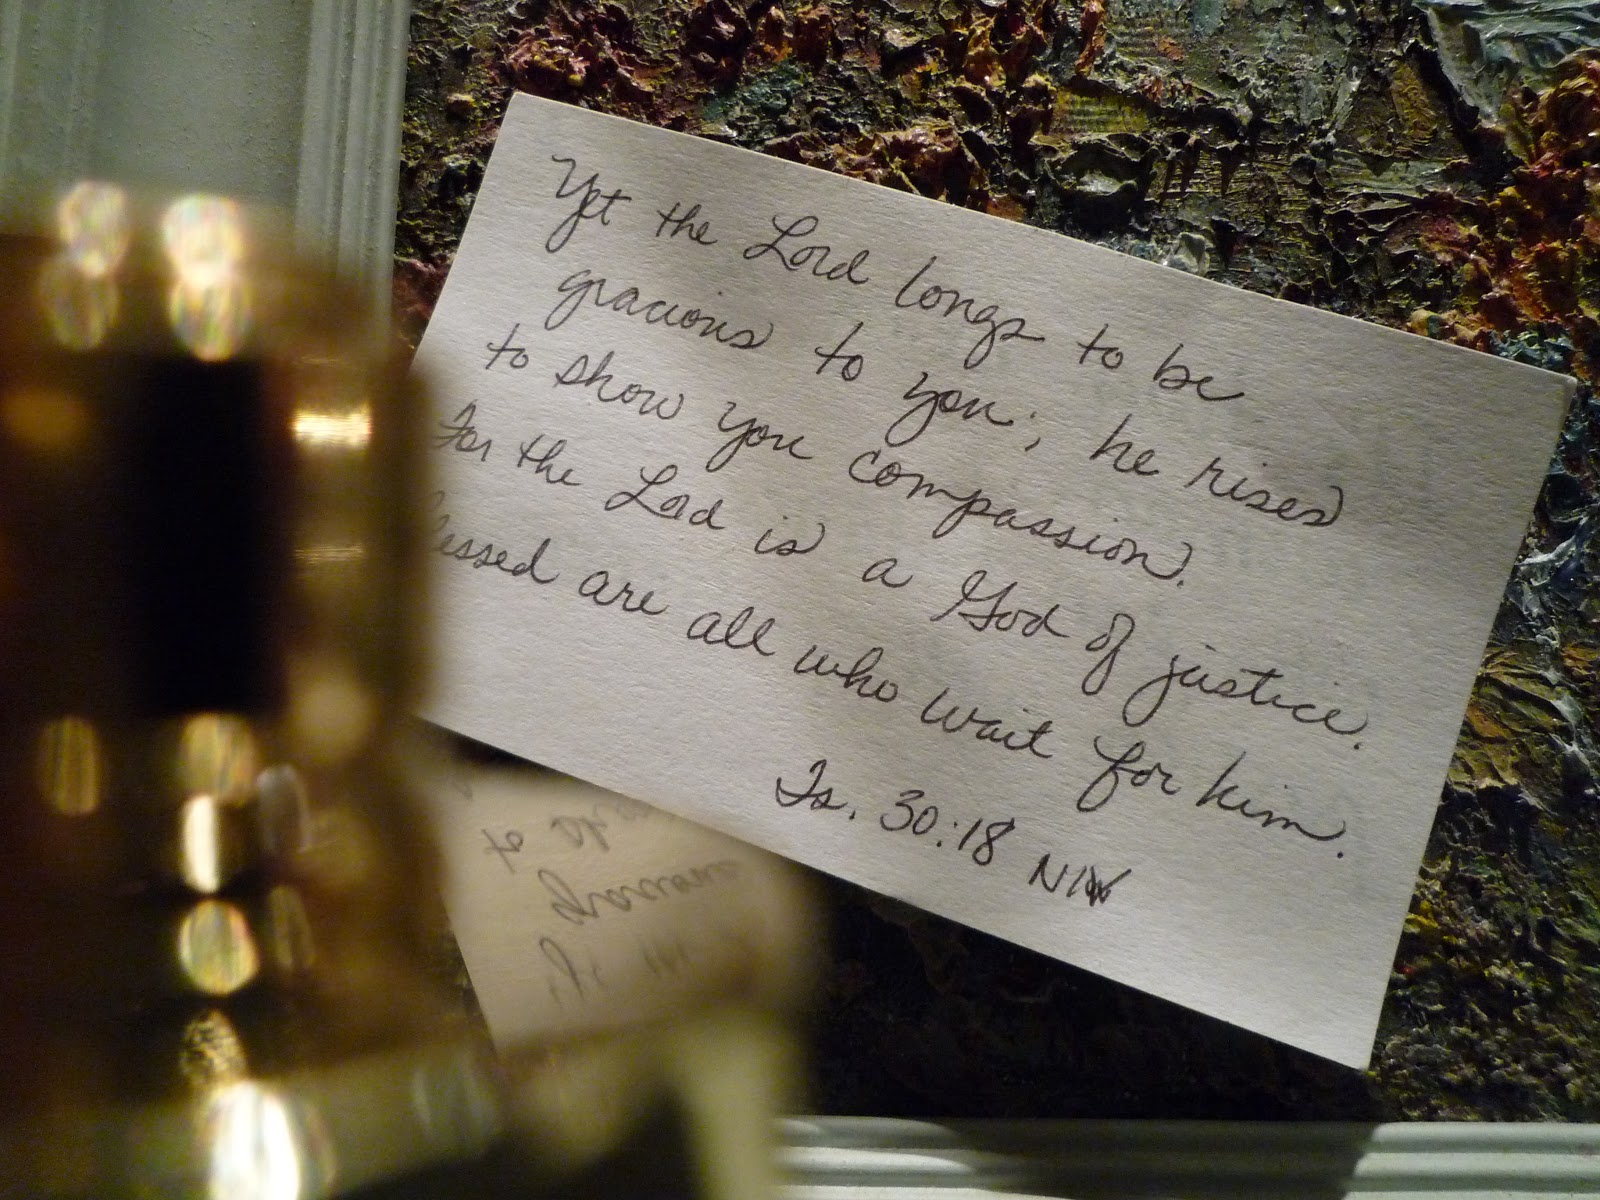 Yet the Lord longs to be
gracious to you; he rises
to show you compassion.
For the Lord is a God of justice.
lessed are all who wait for him.
Is. 30:18 NIV
to
gracious